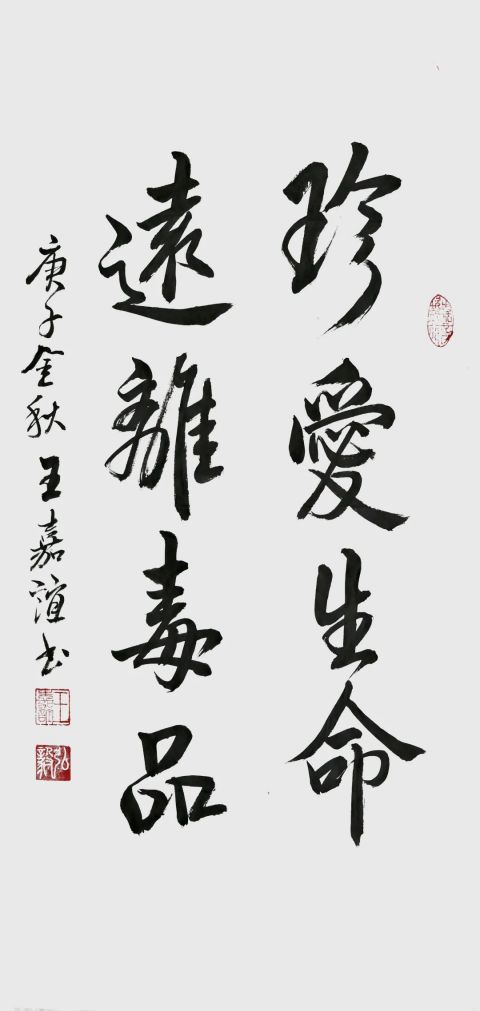 珍愛生命
遠離毒品
庚子金秋王嘉誼书
弘毅